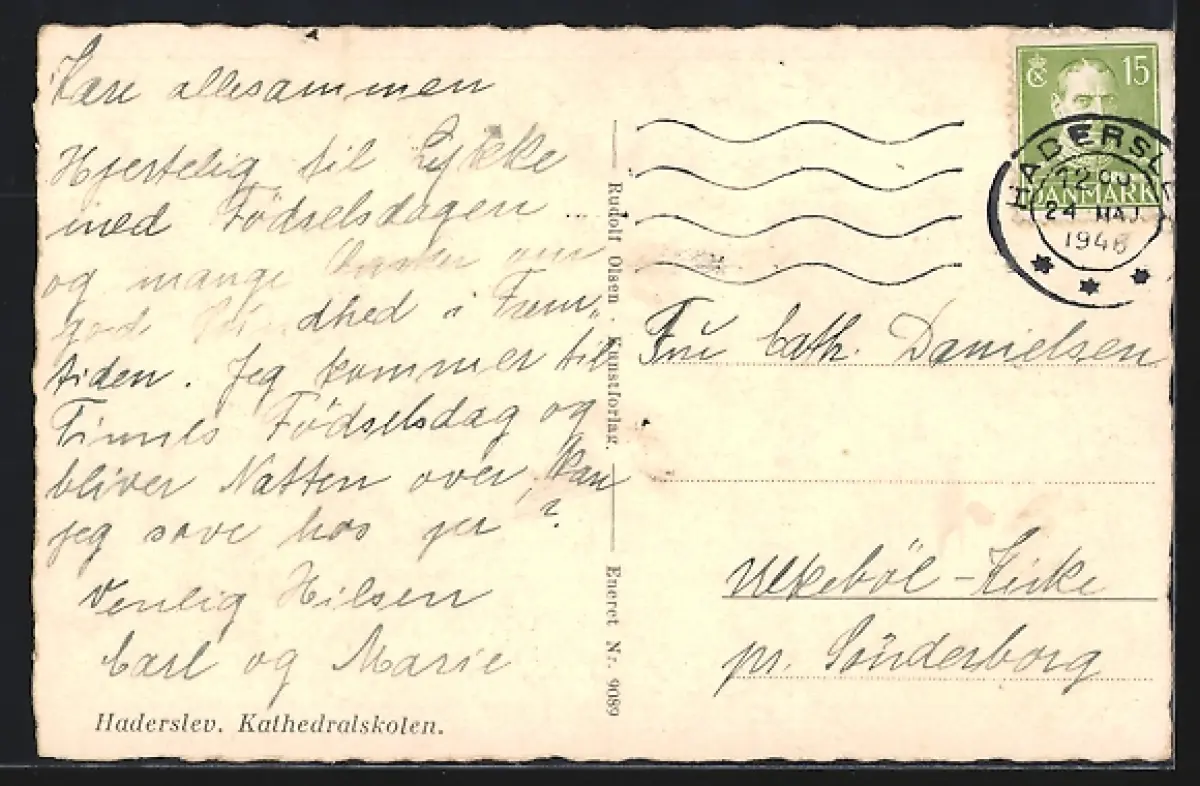 Kære allesammen
Hjertelig til Lykke
med Fødselsdagen
og mange Ønsker om
god Sundhed i Frem-
tiden. Jeg kommer til
Finnes Fødselsdag og
bliver Natten over, kan
jeg sove hos jer?
Venlig Hilsen
Carl og Marie
Haderslev. Kathedralskolen.
Rudolf Olsen. Kunstforlag.
Eneret Nr. 9089
15
DANMARK
HADERSLE
24 MAJ
1946
Fru Cath. Danielsen
Ulkeböl-Kirke
pr. Sönderborg